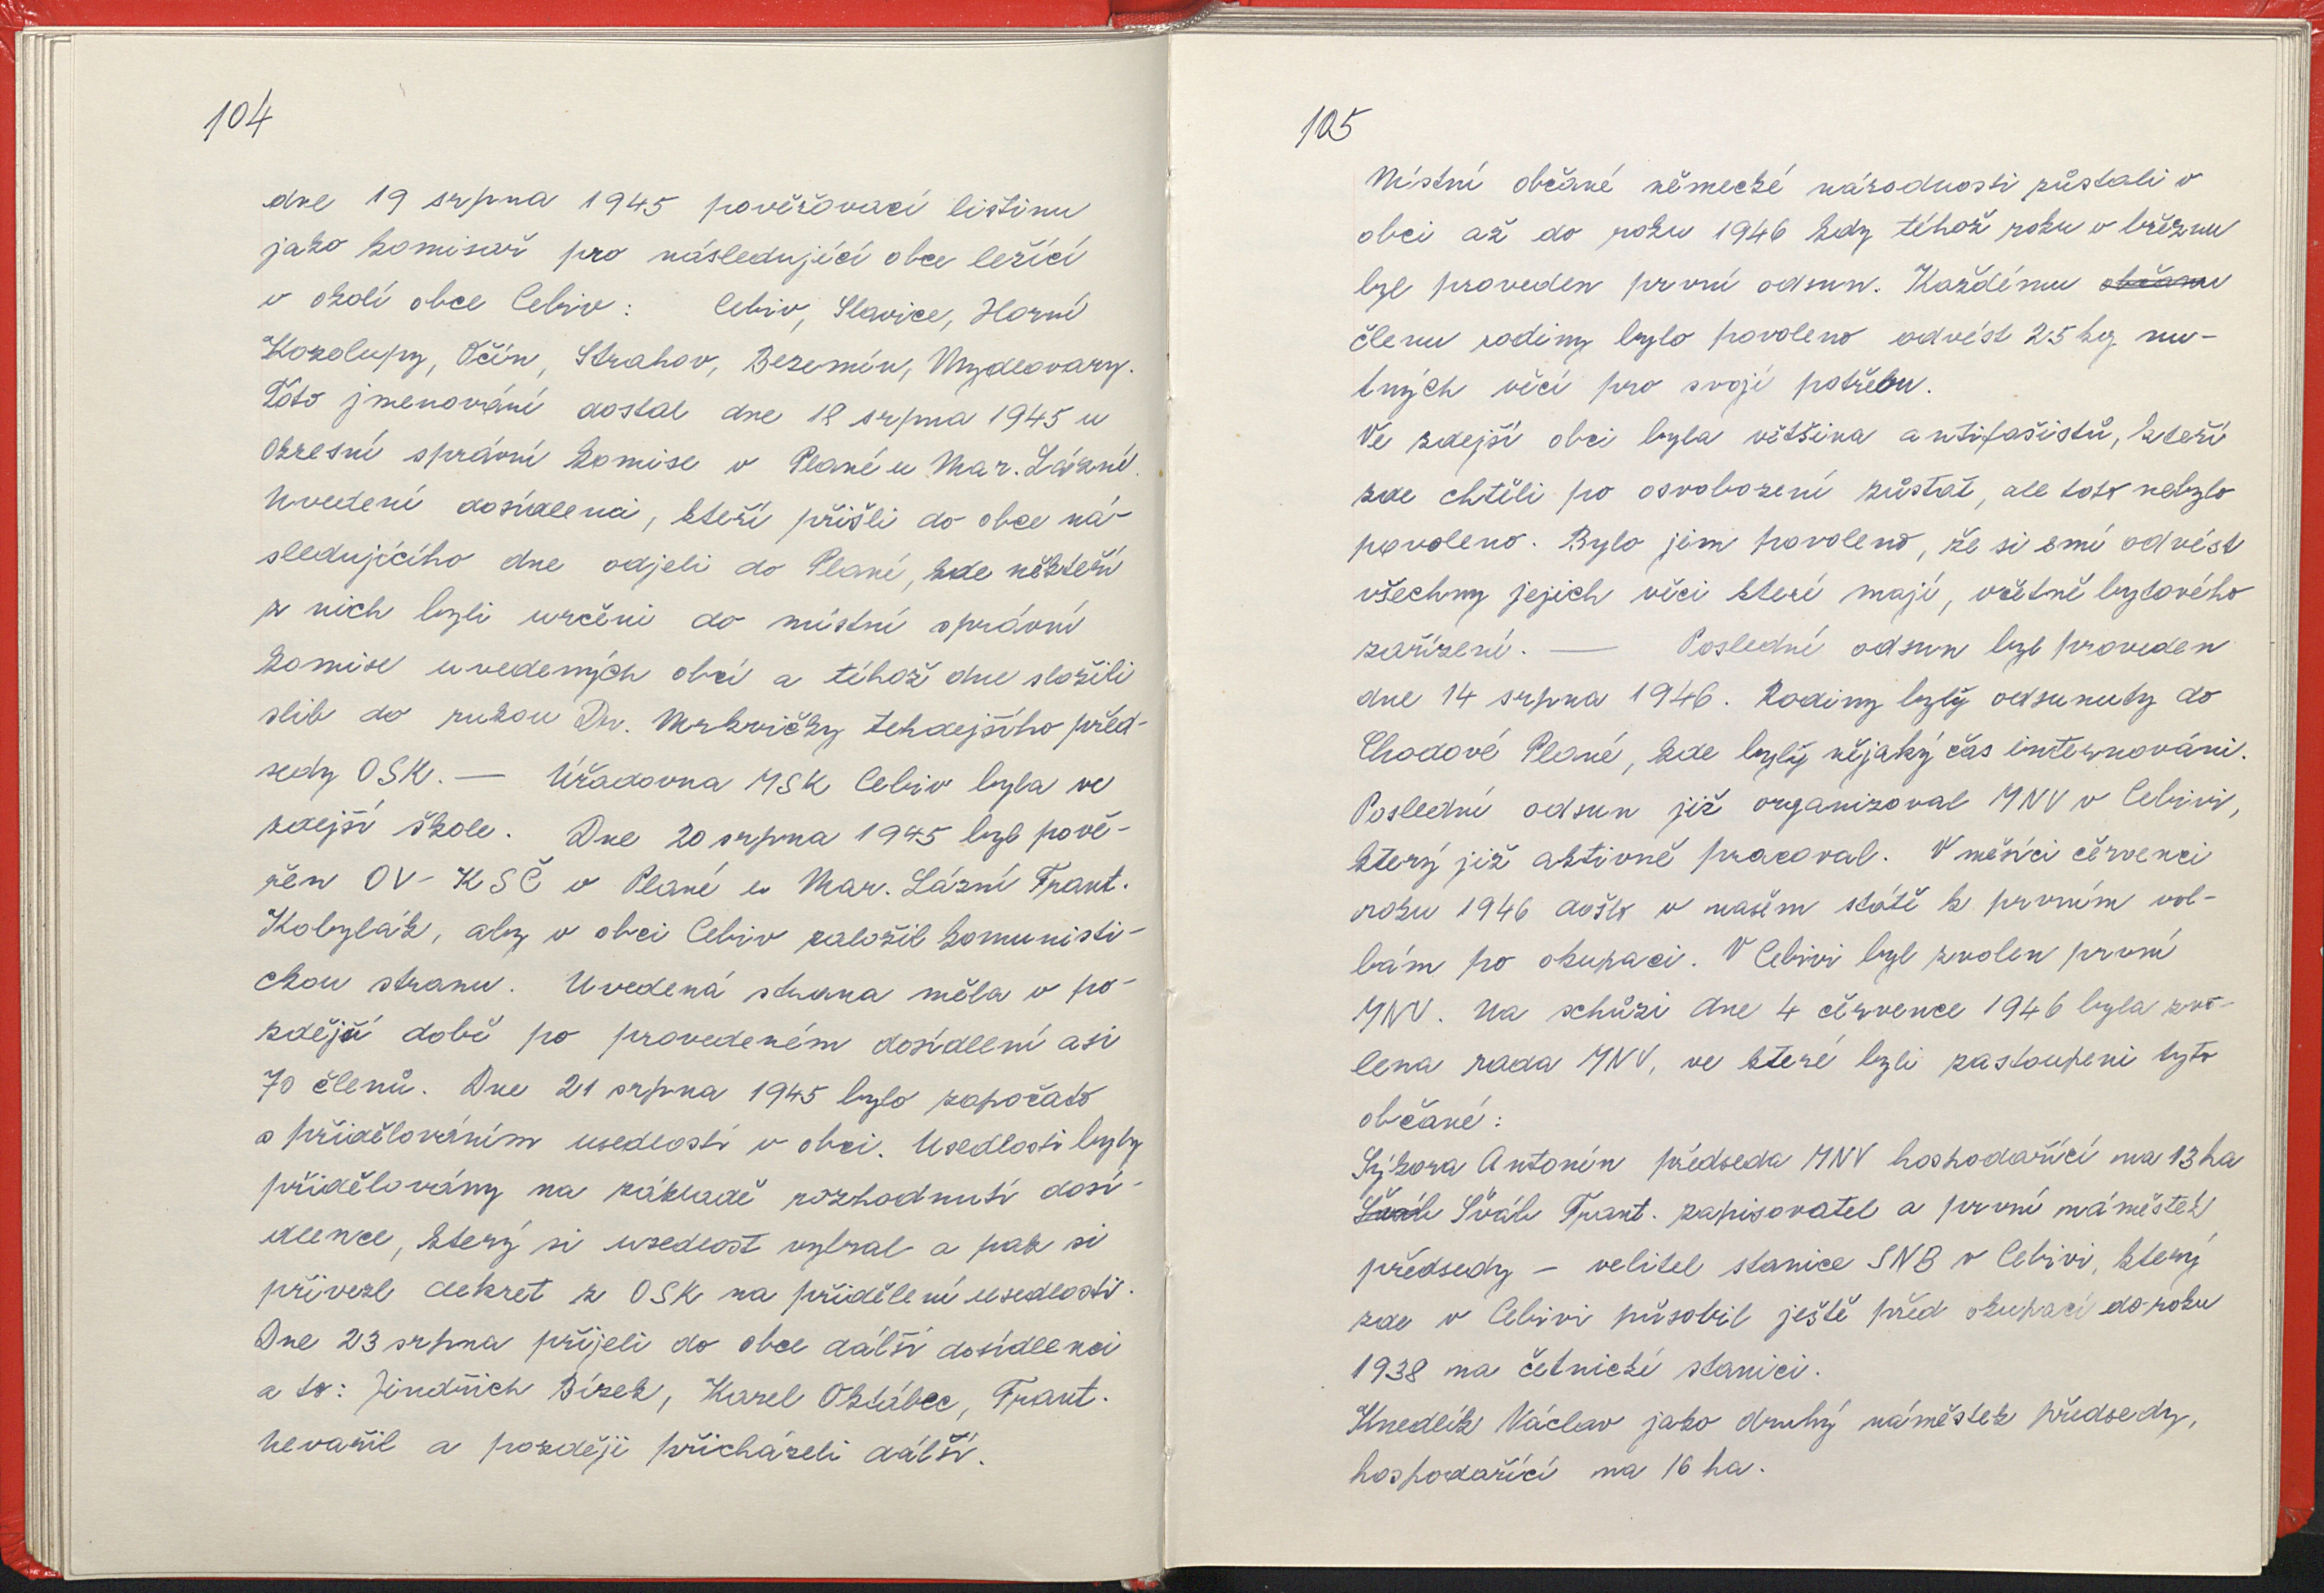 104
dne 19 srpna 1945 pověřovací listinu
jako komisař pro následující obce ležící
v okolí obce Cebiv: Cebiv, Slavice, Horní
Kozolupy, Očín, Strahov, Bezemín, Mydlovary.
Toto jmenování dostal dne 18 srpna 1945 u
Okresní správní komise v Plané u Mar. Lázní.
Uvedení dosídlenci, kteří přišli do obce ná-
sledujícího dne odjeli do Plané, kde někteří
z nich byli určeni do místní správní
komise uvedených obcí a téhož dne složili
slib do rukou Dr. Mrkvičky tehdejšího před-
sedy OSK. — Úřadovna MSK Cebiv byla ve
zdejší škole. Dne 20 srpna 1945 byl pově-
řen OV-KSČ v Plané u Mar. Lázní Frant.
Kobylák, aby v obci Cebiv založil komunisti-
ckou stranu. Uvedená strana měla v po-
zdější době po provedeném dosídlení asi
70 členů. Dne 21 srpna 1945 bylo započato
s přidělováním usedlostí v obci. Usedlosti byly
přidělovány na základě rozhodnutí dosí-
dlence, který si usedlost vybral a pak si
přivezl dekret z OSK na přidělení usedlosti.
Dne 23 srpna přijeli do obce další dosídlenci
a to: Jindřich Bízek, Karel Oktábec, Frant.
Nevařil a později přicházeli další.
105
Místní občané německé národnosti zůstali v
obci až do roku 1946 kdy téhož roku v březnu
byl proveden první odsun. Každému občanu
členu rodiny bylo povoleno odvést 25 kg nu-
tných věcí pro svoji potřebu.
Ve zdejší obci byla většina antifašistů, kteří
zde chtěli po osvobození zůstat, ale toto nebylo
povoleno. Bylo jim povoleno, že si smí odvést
všechny jejich věci které mají, včetně bytového
zařízení. — Poslední odsun byl proveden
dne 14 srpna 1946. Rodiny byly odsunuty do
Chodové Plané, kde byly nějaký čas internováni.
Poslední odsun již organizoval MNV v Cebivi,
který již aktivně pracoval. V měsíci červenci
roku 1946 došlo v našem státě k prvním vol-
bám po okupaci. V Cebivi byl zvolen první
MNV. Na schůzi dne 4 července 1946 byla zvo-
lena rada MNV, ve které byli zastoupeni tyto
občané:
Sýkora Antonín předseda MNV hospodařící na 13 ha
Šváb Šváb Frant. zapisovatel a první náměstek
předsedy — velitel stanice SNB v Cebivi, který
zde v Cebivi působil ještě před okupací do roku
1938 na četnické stanici.
Knedlík Václav jako druhý náměstek předsedy,
hospodařící na 16 ha.